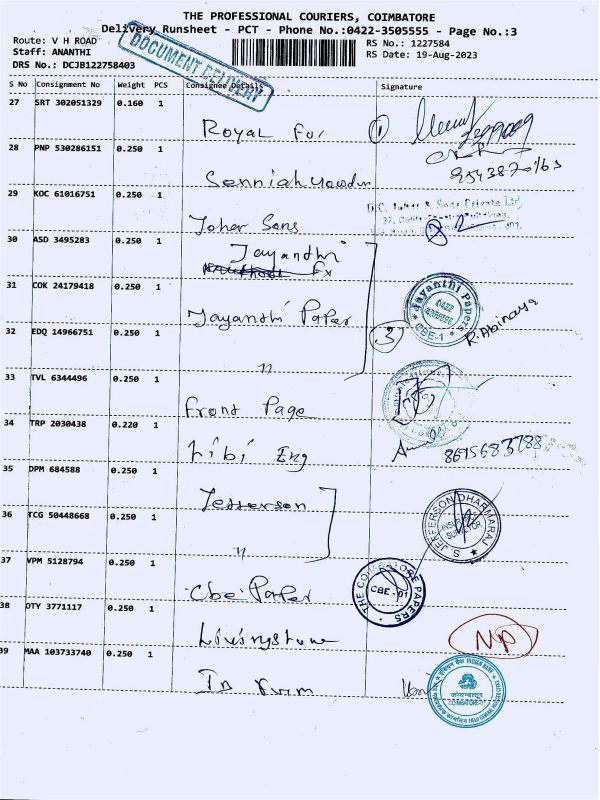 THE PROFESSIONAL COURIERS, COIMBATORE
Delivery Runsheet - PCT - Phone No.:0422-3505555 - Page No.:3
Route: V H ROAD
Staff: ANANTHI
DRS No.: DCJB122758403
RS No.: 1227584
RS Date: 19-Aug-2023
DOCUMENT DELIVERY
S No Consignment No Weight PCS Consignee Details Signature
27 SRT 302051329 0.160 1
Royal Fur 1
28 PNP 530286151 0.250 1
29 KOC 61016751 0.250 1
Joher Sons 2
30 ASD 3495283 0.250 1
Jayandhi
Ex
31 COK 24179418 0.250 1
Jayandhi Paper 3
Jayanthi Papers
0422
CBE-1
R. Abinaya
32 EDQ 14966751 0.250 1
"
33 TVL 6344496 0.250 1
Front Page
34 TRP 2030438 0.220 1
Libi Eng
35 DPM 684588 0.250 1
Jefferson
36 TCG 50448668 0.250 1
"
S. JEFFERSON DHARMARAJ
INSURANCE
37 VPM 5128794 0.250 1
Cbe Paper
THE COIMBATORE PAPERS
CBE - 01
38 OTY 3771117 0.250 1
Livingstone
NP
39 MAA 103733740 0.250 1
INDIAN BANK